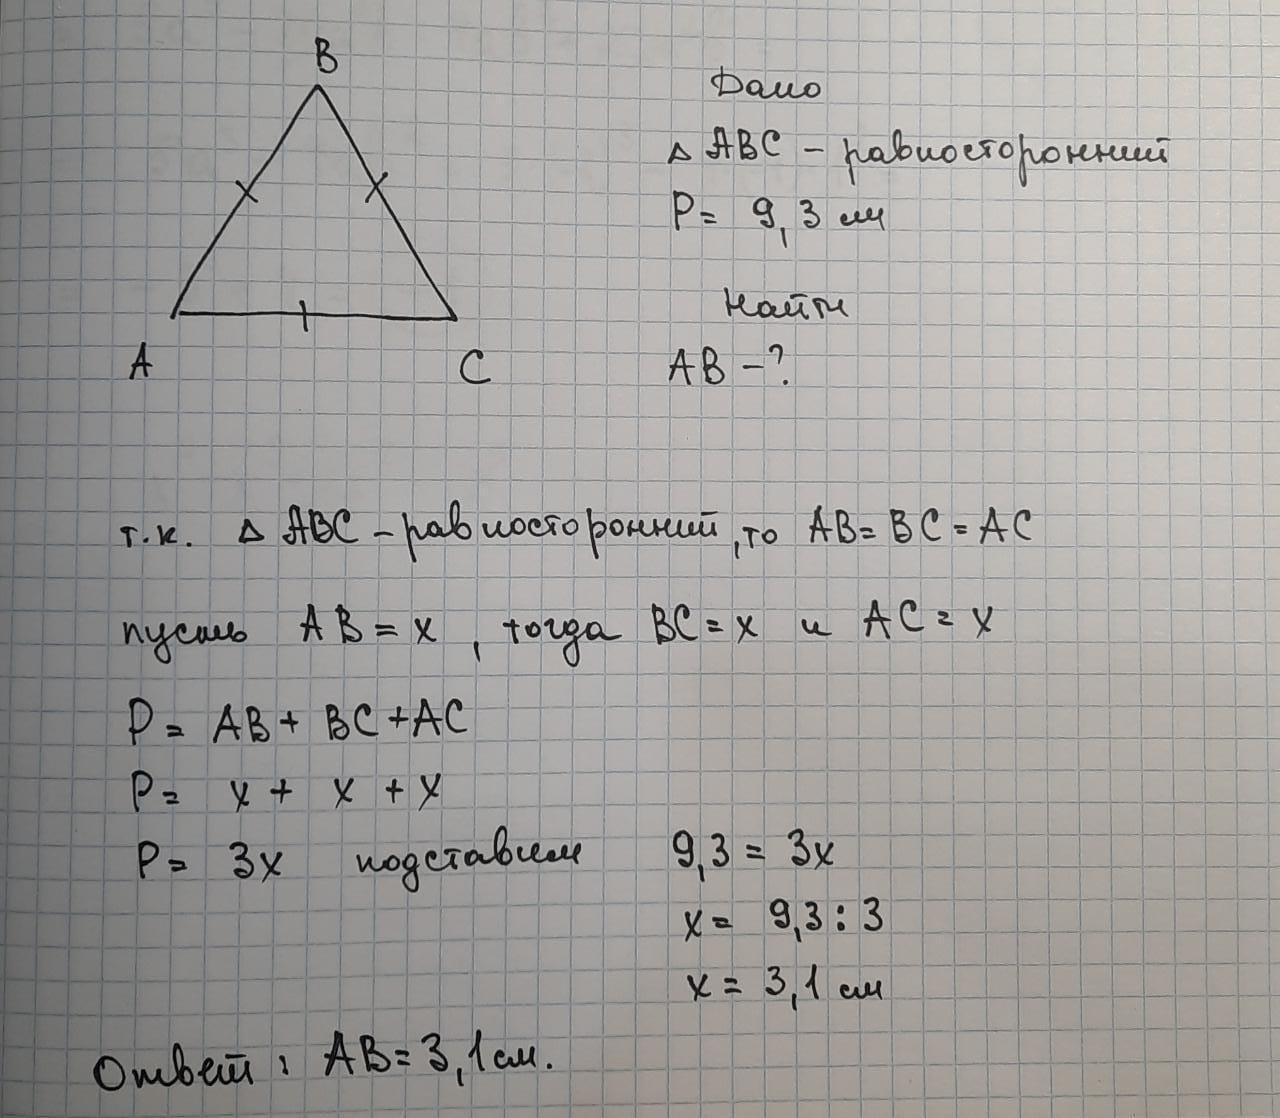 B
A
C
Дано
△ ABC – равносторонний
P = 9,3 см
Найти
AB – ?
т.к. △ ABC – равносторонний, то AB = BC = AC
пусть AB = x, тогда BC = x и AC = x
P = AB + BC + AC
P = x + x + x
P = 3x подставим 9,3 = 3x
x = 9,3 : 3
x = 3,1 см
Ответ: AB = 3,1 см.